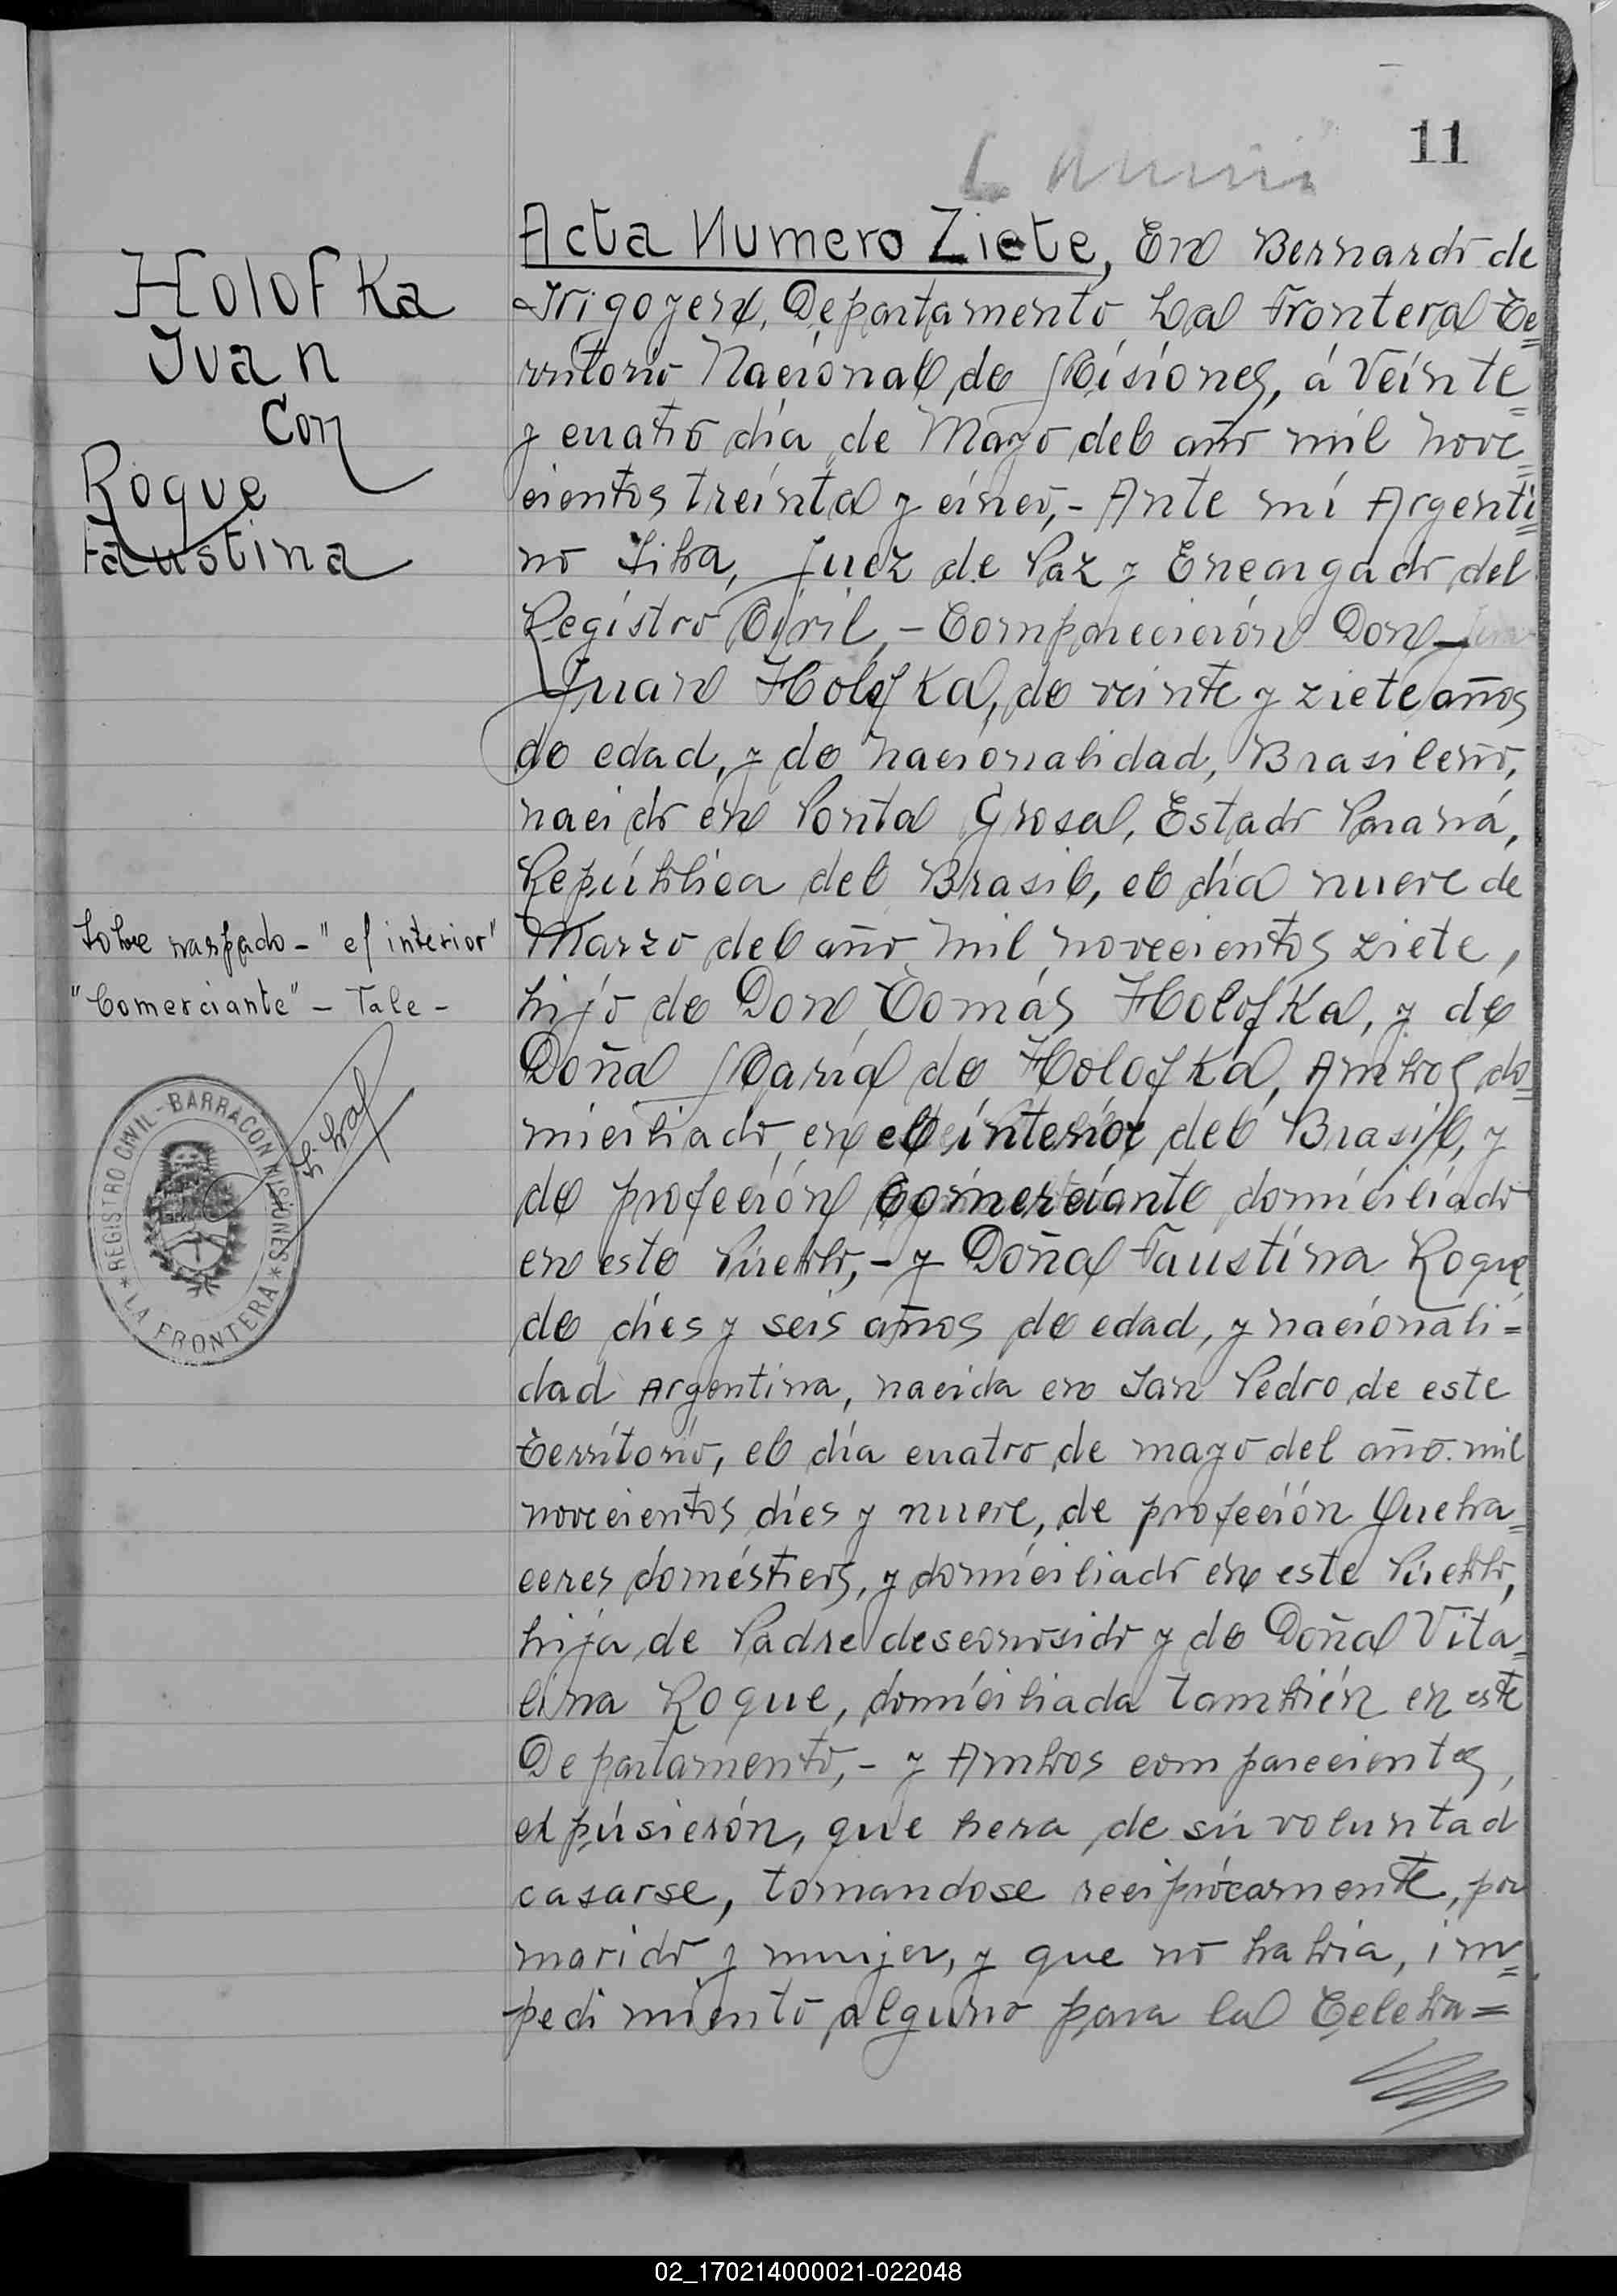 11
Holofka
Juan
Con
Roque
Faustina
Sobre raspado - "el interior"
"Comerciante" - Vale -
Silva
REGISTRO CIVIL - BARRACON MISIONES
* LA FRONTERA *
Acta Numero Ziete, En Bernardo de
Irigoyen, Departamento La Frontera Te=
rritorio Nacional de Misiones, á Veinte=
y cuatro día de Mayo del año mil nove=
cientos treinta y cinco,- Ante mí Argenti=
no Silva, Juez de Paz y Encargado del
Registro Civil,- Comparecieron Don
Juan Holofka, de veinte y ziete años
de edad, y de nacionalidad, Brasileño,
nacido en Ponta Grosa, Estado Paraná,
República del Brasil, el día nueve de
Marzo del año mil novecientos ziete,
hijo de Don Tomás Holofka, y de
Doña María de Holofka, Ambos do=
miciliado, en el interior del Brasil, y
de profeción Comerciante domiciliado
en este Pueblo,- y Doña Faustina Roque,
de dies y seis años de edad, y nacionali=
dad Argentina, nacida en San Pedro de este
Territorio, el día cuatro de mayo del año mil
novecientos dies y nueve, de profeción Queha=
ceres doméstícos, y domiciliado en este Pueblo,
hija de Padre desconosido y de Doña Vita=
lina Roque, domiciliada también en este
Departamento,- y Ambos comparecientes,
expusierón, que hera de su voluntad
casarse, tomandose reciprócamente, por
marido y mujer, y que no habia, im=
pedimiento alguno para la Celebra=
02_170214000021-022048